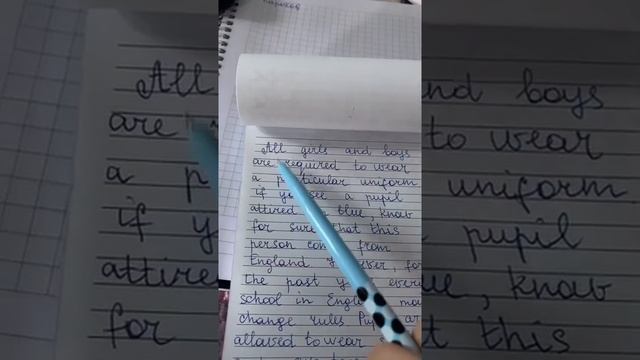 All girls and boys
are required to wear
a particular uniform
if you see a pupil
attired in blue, know
for sure that this
person from
England
the past every
school in
change rules
allowed to wear